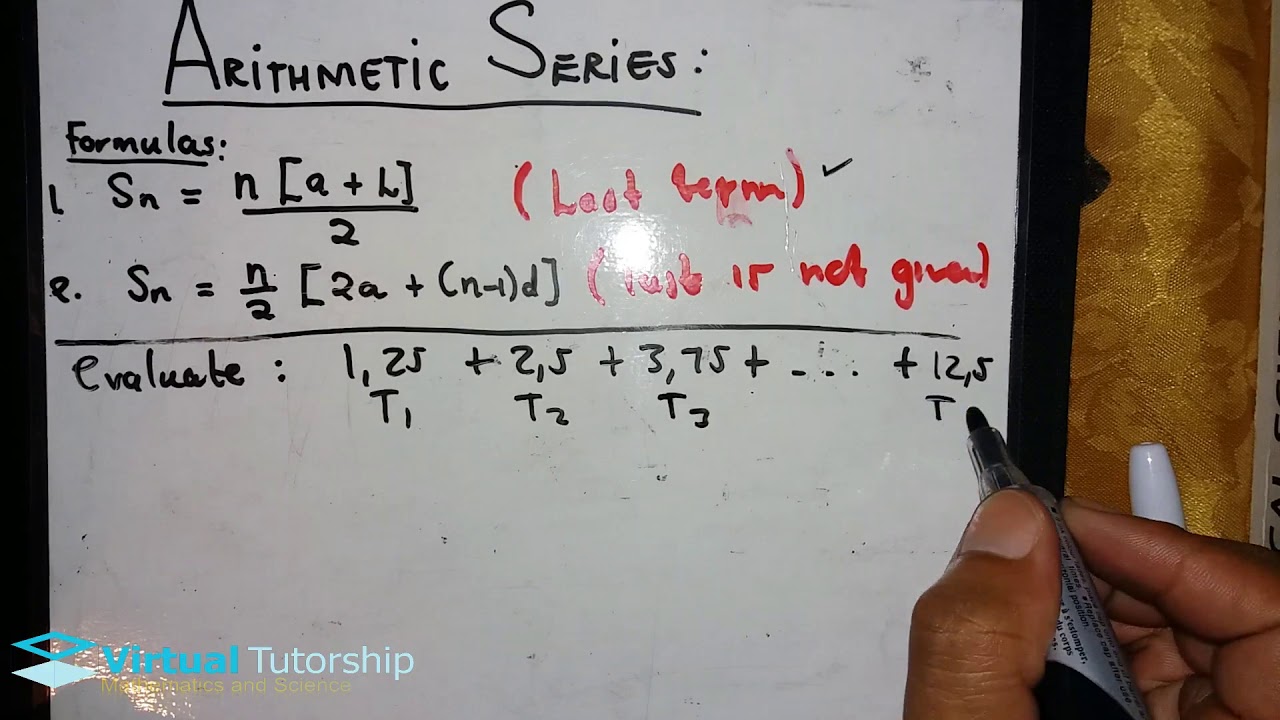 ARITHMETIC SERIES:
Formulas:
1. Sn = n [a + L] / 2 (Last term) ✓
2. Sn = n/2 [2a + (n-1)d] (last is not given)
Evaluate : 1,25 + 2,5 + 3,75 + ... + 12,5
T1 T2 T3 T
Virtual Tutorship
Mathematics and Science